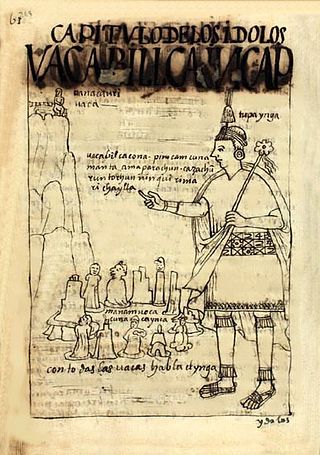 CAPITVLO DELOS IDOLOS
VACA BILLCA INCAP
uanacauri
uaca
topa ynga
uaca bilcacona. pim camcuna
manta ama parachun cazachu
runtochun ninqui rima
ri chaylla
manam noca
cuna ca ynca
con todas las uacas habla el ynga
ydolos